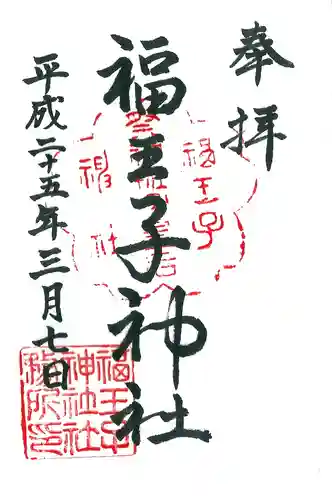 奉拝
福王子神社
平成二十五年三月七日
福王子
神社
福王子
神社社
務所印